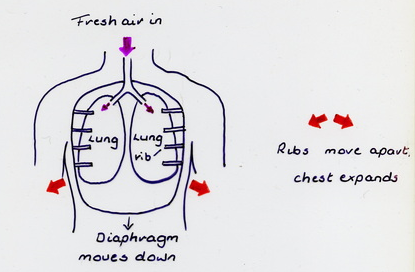 Fresh air in
Lung
Lung
rib
Diaphragm
moves down
Ribs move apart,
chest expands